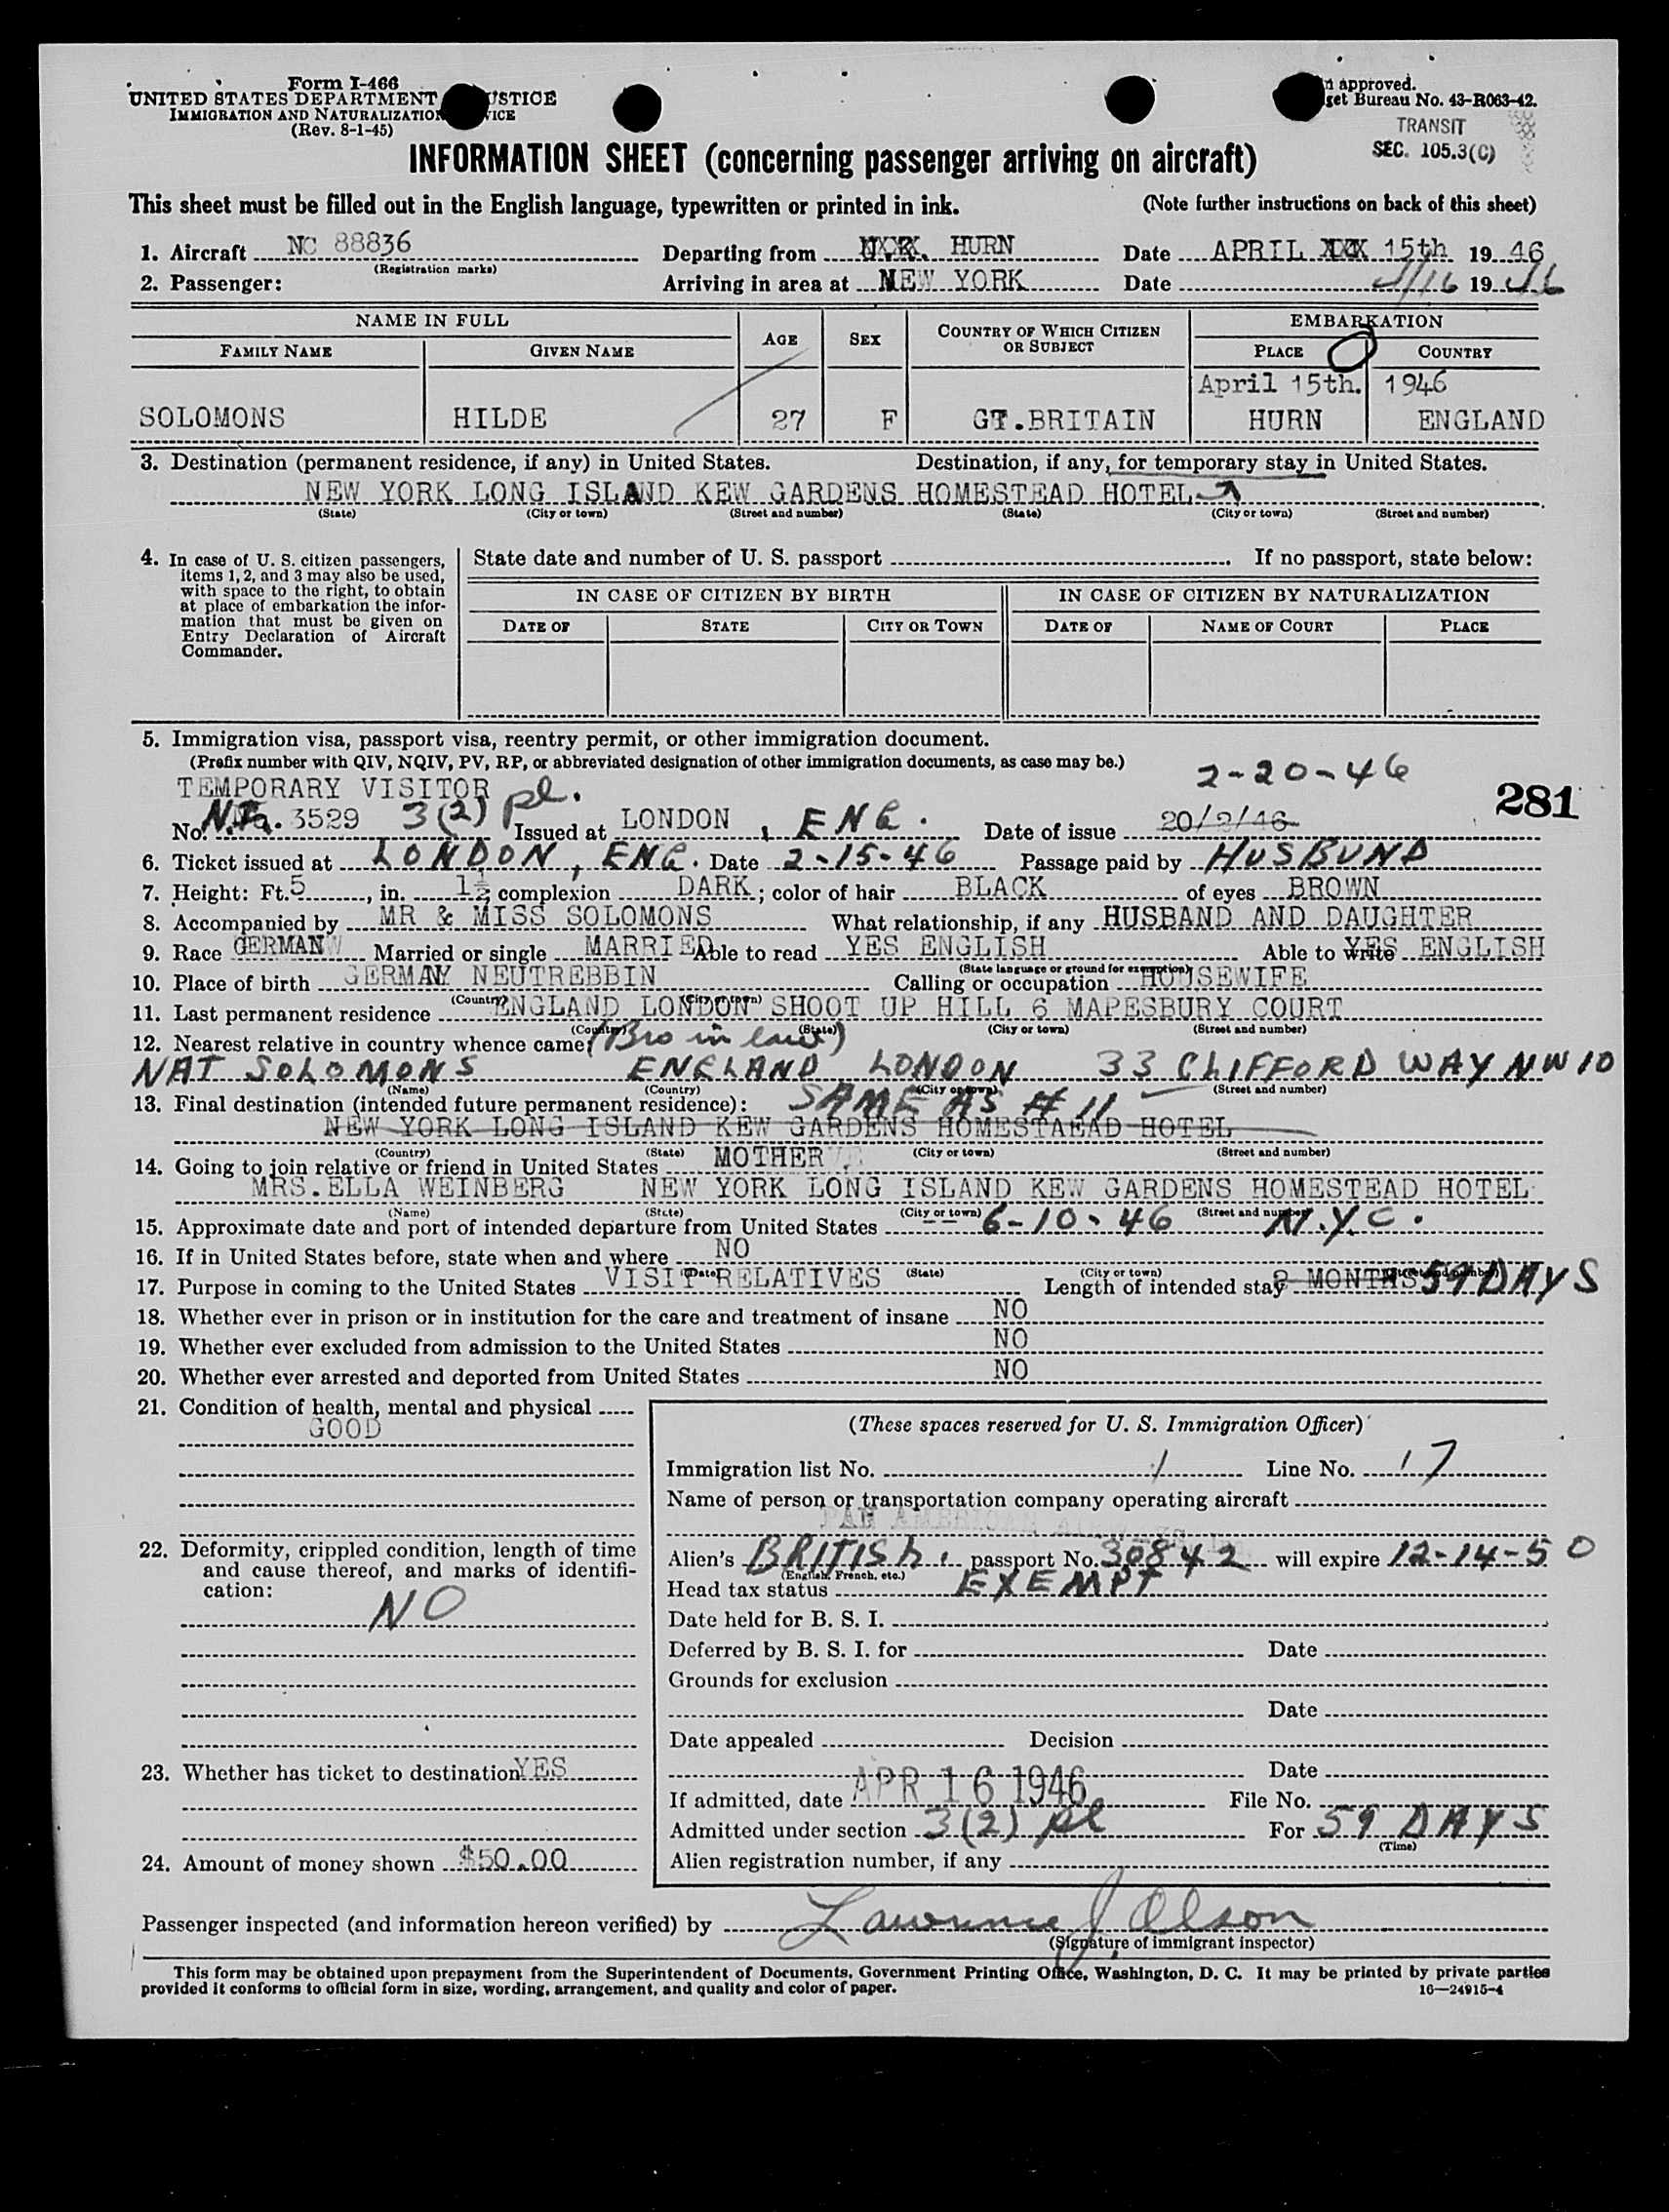 Form I-466
UNITED STATES DEPARTMENT USTICE
IMMIGRATION AND NATURALIZATION VICE
(Rev. 8-1-45)
approved.
get Bureau No. 43-R063-42.
TRANSIT
SEC. 105.3(C)
INFORMATION SHEET (concerning passenger arriving on aircraft)
This sheet must be filled out in the English language, typewritten or printed in ink. (Note further instructions on back of this sheet)
1. Aircraft NC 88836 Departing from HURN Date APRIL 15th 19 46
(Registration marks)
2. Passenger: Arriving in area at NEW YORK Date 4/16 19 46
NAME IN FULL AGE SEX COUNTRY OF WHICH CITIZEN OR SUBJECT EMBARKATION
FAMILY NAME GIVEN NAME PLACE COUNTRY
April 15th. 1946
SOLOMONS HILDE 27 F GT.BRITAIN HURN ENGLAND
3. Destination (permanent residence, if any) in United States. Destination, if any, for temporary stay in United States.
NEW YORK LONG ISLAND KEW GARDENS HOMESTEAD HOTEL
(State) (City or town) (Street and number) (State) (City or town) (Street and number)
4. In case of U. S. citizen passengers,
items 1, 2, and 3 may also be used,
with space to the right, to obtain
at place of embarkation the infor-
mation that must be given on
Entry Declaration of Aircraft
Commander.
State date and number of U. S. passport If no passport, state below:
IN CASE OF CITIZEN BY BIRTH IN CASE OF CITIZEN BY NATURALIZATION
DATE OF STATE CITY OR TOWN DATE OF NAME OF COURT PLACE
5. Immigration visa, passport visa, reentry permit, or other immigration document.
(Prefix number with QIV, NQIV, PV, RP, or abbreviated designation of other immigration documents, as case may be.)
2-20-46
281
TEMPORARY VISITOR
No. 3529 3(2) pl. Issued at LONDON, ENG. Date of issue 20/2/46
6. Ticket issued at LONDON, ENG. Date 2-15-46 Passage paid by HUSBUND
7. Height: Ft. 5, in. 1½ complexion DARK; color of hair BLACK of eyes BROWN
8. Accompanied by MR & MISS SOLOMONS What relationship, if any HUSBAND AND DAUGHTER
9. Race GERMAN Married or single MARRIED Able to read YES ENGLISH Able to write YES ENGLISH
(State language or ground for exemption)
10. Place of birth GERMANY NEUTREBBIN Calling or occupation HOUSEWIFE
(Country) (City or town)
11. Last permanent residence ENGLAND LONDON SHOOT UP HILL 6 MAPESBURY COURT
(Country) (State) (City or town) (Street and number)
12. Nearest relative in country whence came: (Bro in law)
NAT SOLOMONS ENGLAND LONDON 33 CLIFFORD WAY NW10
(Name) (Country) (City or town) (Street and number)
13. Final destination (intended future permanent residence): SAME AS # 11
NEW YORK LONG ISLAND KEW GARDENS HOMESTAEAD HOTEL
(Country) (State) (City or town) (Street and number)
14. Going to join relative or friend in United States MOTHER
MRS. ELLA WEINBERG NEW YORK LONG ISLAND KEW GARDENS HOMESTEAD HOTEL
(Name) (State) (City or town) (Street and number)
15. Approximate date and port of intended departure from United States 6-10-46 N.Y.C.
16. If in United States before, state when and where NO
(Date) (State) (City or town) (Street and number)
17. Purpose in coming to the United States VISIT RELATIVES Length of intended stay 2 MONTHS 59 DAYS
18. Whether ever in prison or in institution for the care and treatment of insane NO
19. Whether ever excluded from admission to the United States NO
20. Whether ever arrested and deported from United States NO
21. Condition of health, mental and physical
GOOD
22. Deformity, crippled condition, length of time
and cause thereof, and marks of identifi-
cation:
NO
23. Whether has ticket to destination YES
24. Amount of money shown $50.00
(These spaces reserved for U. S. Immigration Officer)
Immigration list No. 1 Line No. 17
Name of person or transportation company operating aircraft
PAN AMERICAN
Alien's BRITISH passport No. 30842 will expire 12-14-50
(English, French, etc.)
Head tax status EXEMPT
Date held for B. S. I.
Deferred by B. S. I. for Date
Grounds for exclusion
Date
Date appealed Decision
Date
If admitted, date APR 16 1946 File No.
Admitted under section 3(2) pl For 59 DAYS
(Time)
Alien registration number, if any
Passenger inspected (and information hereon verified) by Lawrence J Olson
(Signature of immigrant inspector)
This form may be obtained upon prepayment from the Superintendent of Documents, Government Printing Office, Washington, D. C. It may be printed by private parties
provided it conforms to official form in size, wording, arrangement, and quality and color of paper. 16—24915-4